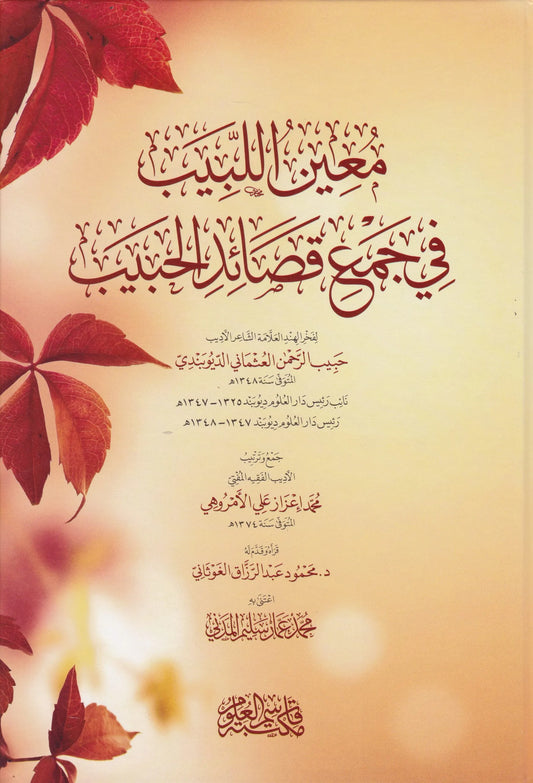 مُعِينُ اللَّبِيْبِ
فِي جَمْعِ قَصَائِدِ الحَبِيْبِ
لِفَخْرِ الهِنْدِ العَلَّامَةِ الشَّاعِرِ الأَدِيبِ
حَبِيبِ الرَّحْمٰنِ العُثْمَانِي الدِّيُوبَنْدِي
المُتَوَفّٰى سَنَة ١٣٤٨هـ
نَائِب رَئِيس دَار العُلُوم دِيُوبَنْد ١٣٢٥ - ١٣٤٧هـ
رَئِيس دَار العُلُوم دِيُوبَنْد ١٣٤٧ - ١٣٤٨هـ
جَمْعُ وَتَرْتِيبُ
الأَدِيبِ الفَقِيهِ المُفْتِي
مُحَمَّد إِعْزَاز عَلِي الأَمْرُوهِي
المُتَوَفّٰى سَنَة ١٣٧٤هـ
قَرَأَهُ وَقَدَّمَ لَهُ
د. مَحْمُود عَبْد الرَّزَّاق الغَوْثَانِي
اعْتَنَى بِهِ
مُحَمَّد عَمَّار سَلِيم المَدَنِي
مكتبة قاسم العلوم